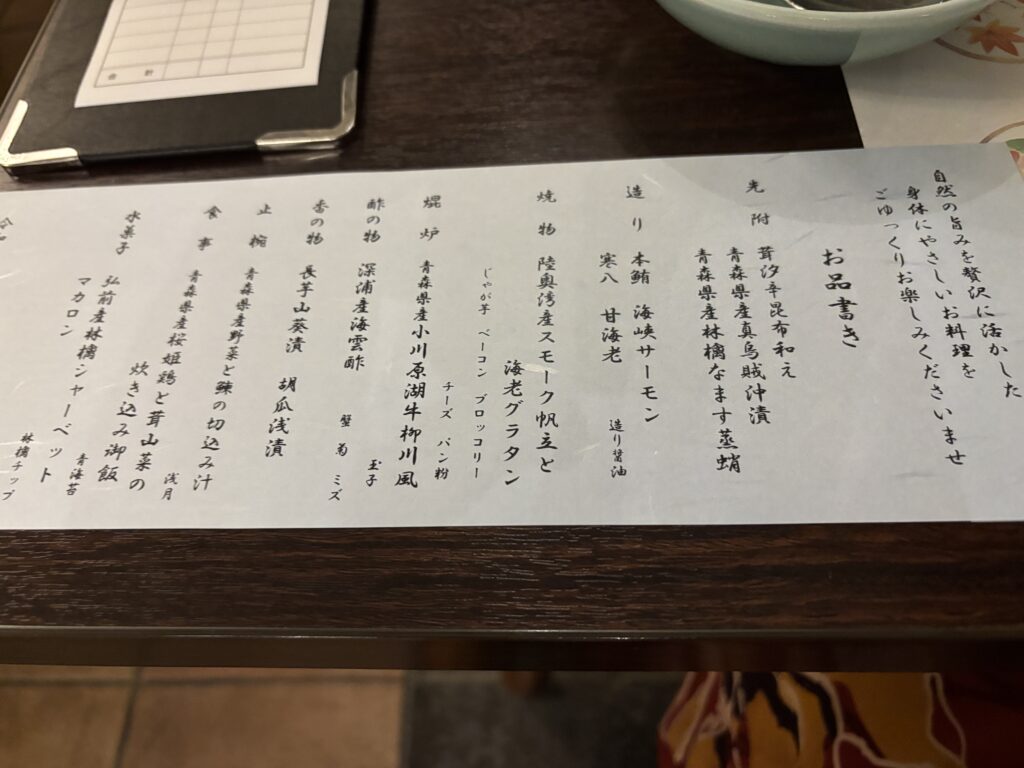 自然の旨みを贅沢に活かした
身体にやさしいお料理を
ごゆっくりお楽しみくださいませ
お品書き
先附
茸汐辛昆布和え
青森県産真烏賊沖漬
青森県産林檎なます蒸蛸
造り
本鮪 海峡サーモン
寒八 甘海老
造り醤油
焼物
陸奥湾産スモーク帆立と
海老グラタン
じゃが芋 ベーコン ブロッコリー
チーズ パン粉
焜炉
青森県産小川原湖牛柳川風
玉子
酢の物
深浦産海雲酢
蟹 菊 ミズ
香の物
長芋山葵漬 胡瓜浅漬
止椀
青森県産野菜と鱈の切込み汁
浅月
食事
青森県産桜姫鶏と茸山菜の
炊き込み御飯
青海苔
水菓子
弘前産林檎シャーベット
マカロン
林檎チップ
合計